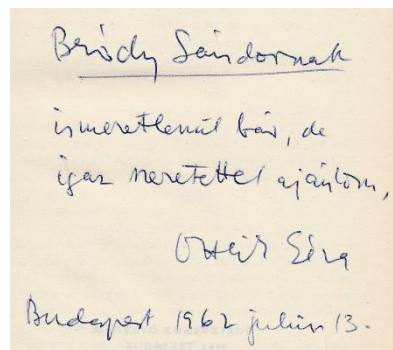 Bródy Sándornak
ismeretlenül bár, de
igaz szeretettel ajánlom,
Ottlik Géza
Budapest 1962 julius 13.